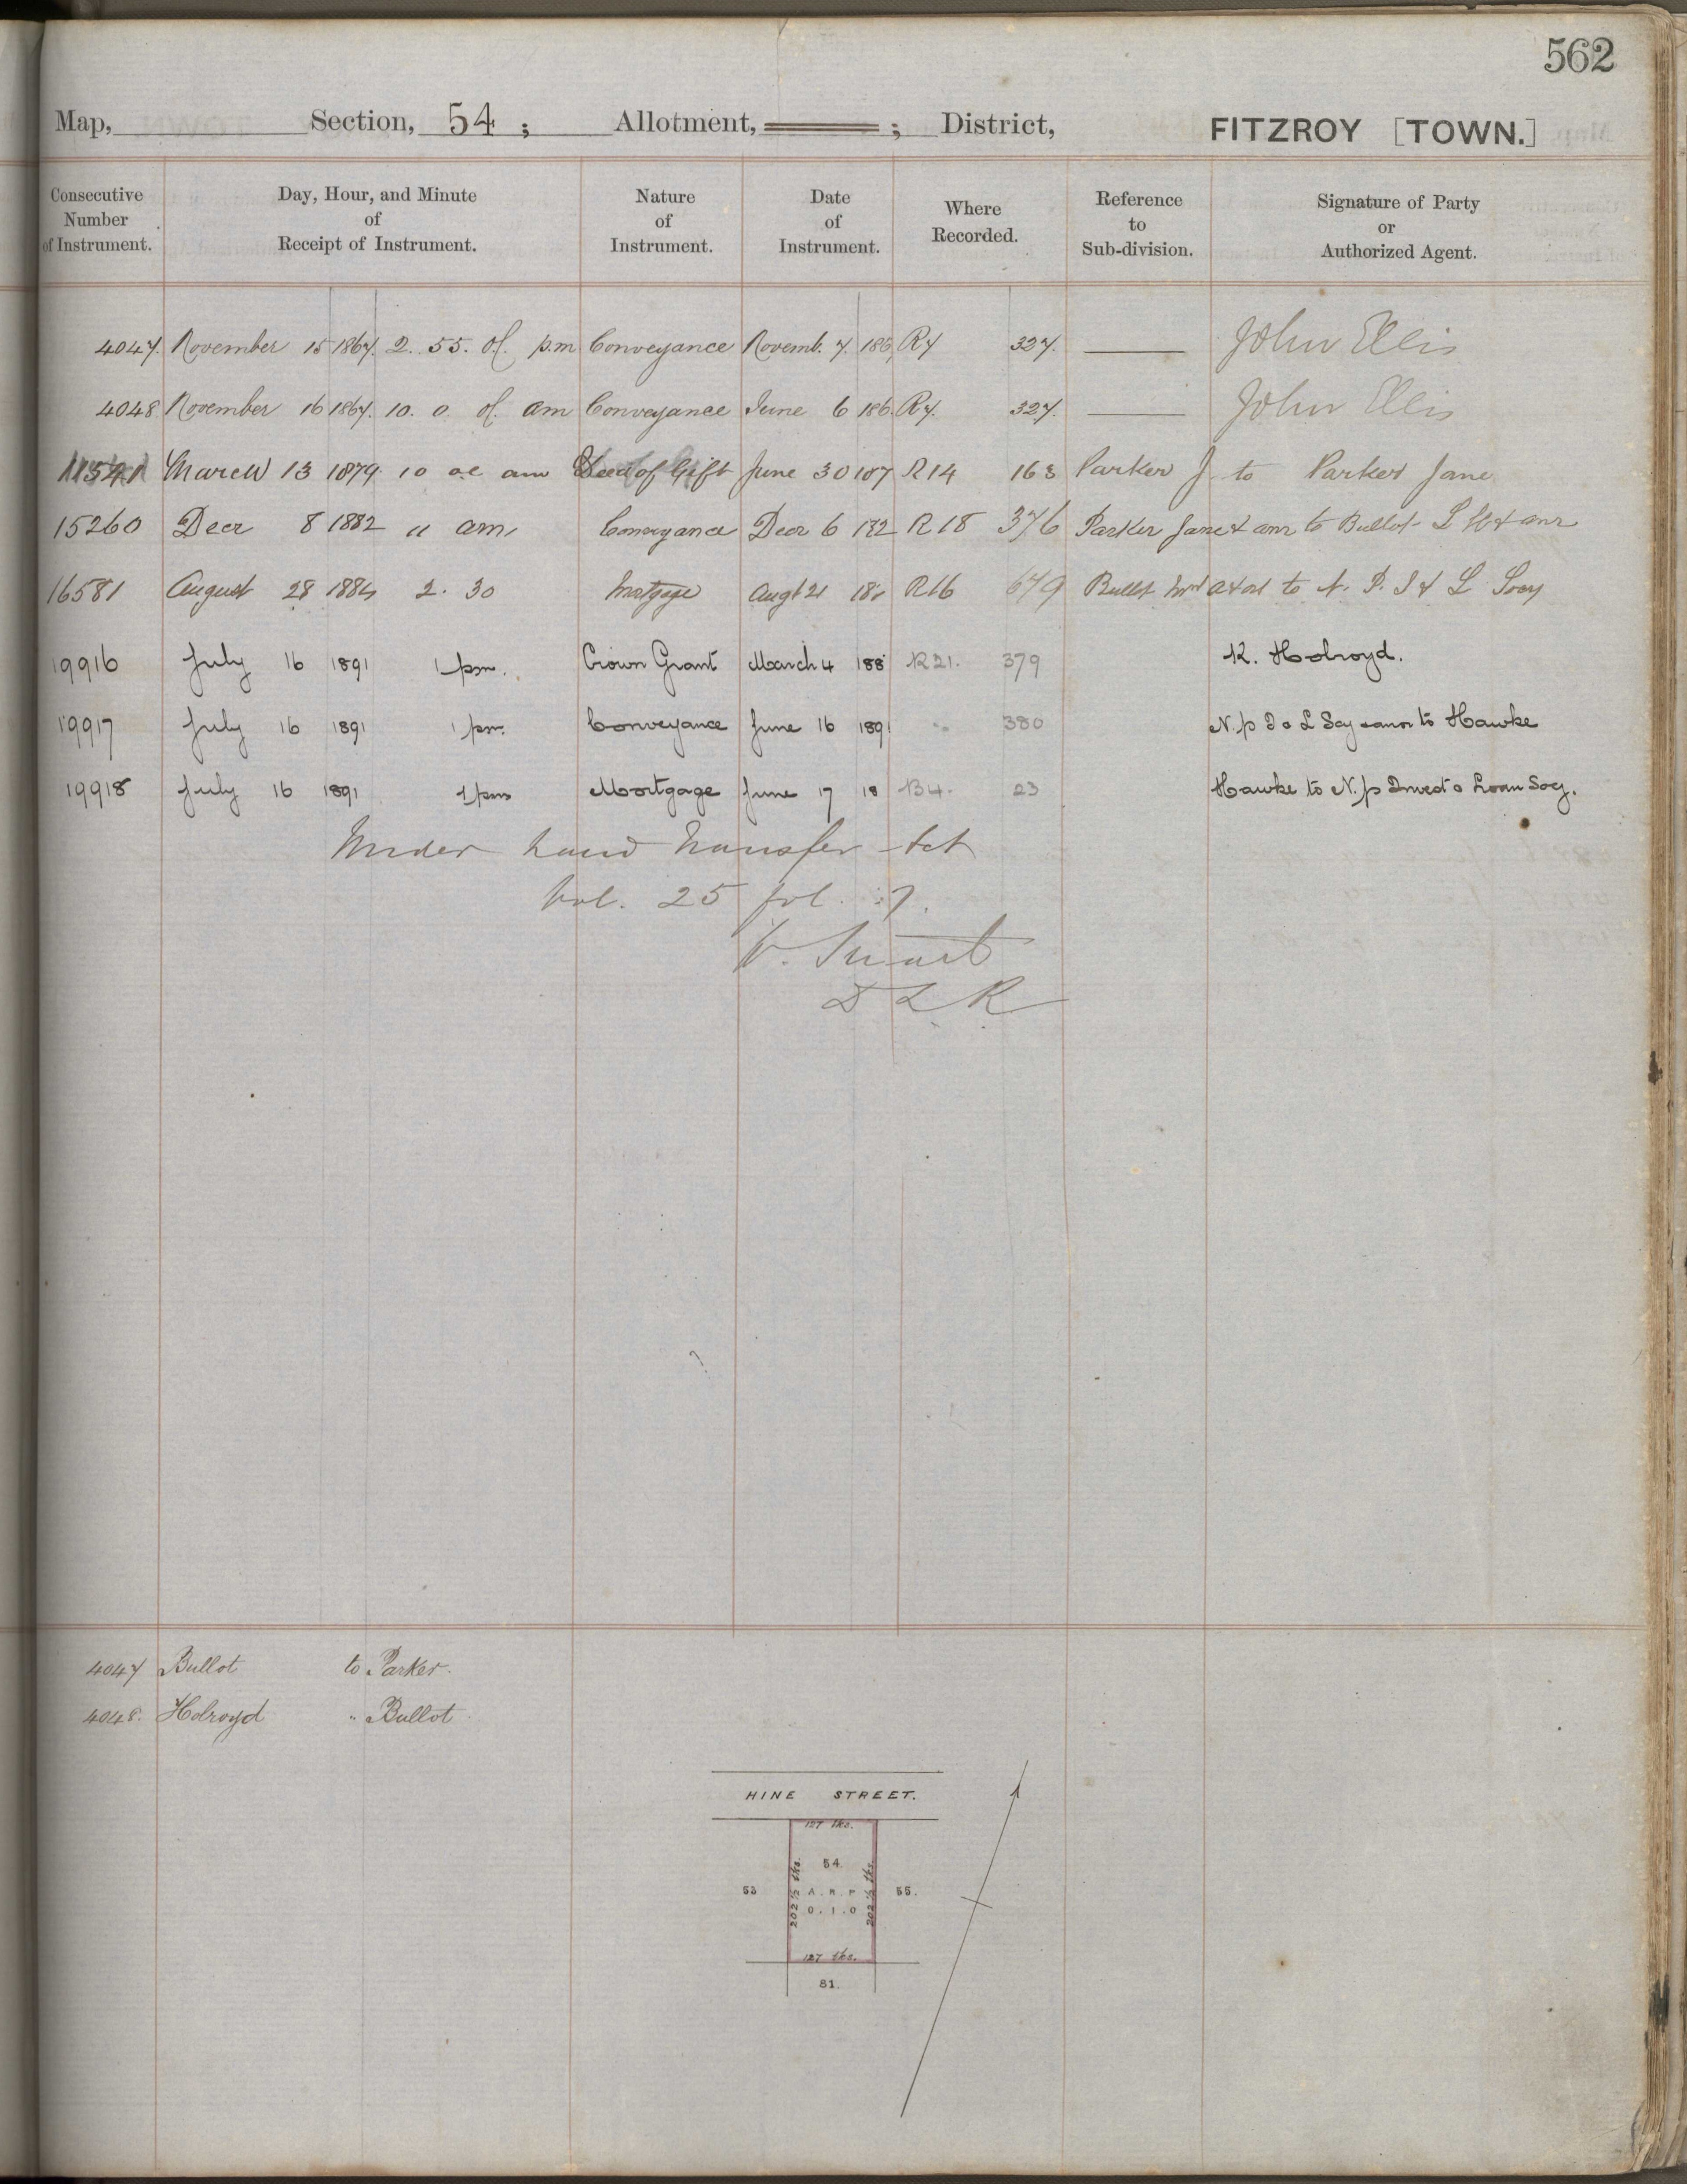 562
Map, Section, 54 ; Allotment, ; District, FITZROY [TOWN.]
Consecutive Number of Instrument. Day, Hour, and Minute of Receipt of Instrument. Nature of Instrument. Date of Instrument. Where Recorded. Reference to Sub-division. Signature of Party or Authorized Agent.
4047. November 15 1867. 2. 55. p.m Conveyance Novemb. 7. 186 R7 327. John Ellis
4048 November 16 1867. 10. 0. am Conveyance June 6 186 R7. 327. John Ellis
11541 March 13 1879 10 am Deed of Gift June 30 187 R14 163 Parker J. to Parker Jane
15260 Decr 8 1882 11 am, Conveyance Decr 6 182 R18 376 Parker Jane & anr to Bullot & anr
16581 August 28 1884 2. 30 Mortgage Augt 21 18 R16 679 Bullot to N. P. I & L Socy
19916 July 16 1891 1 pm. Crown Grant March 4 188 R21. 379 K. Holroyd.
19917 July 16 1891 1 pm. Conveyance June 16 1891 " 380 N. p I & L Socy & anor to Hawke
19918 July 16 1891 1 pm Mortgage June 17 18 B4. 23 Hawke to N. p Invest & Loan Socy.
Under Land Transfer Act
Vol. 25 fol. 7.
V. Stuart
D L R
4047 Bullot to Parker.
4048. Holroyd " Bullot
HINE STREET.
127 lks.
54.
202½ lks.
A. R. P
202½ lks.
53
55.
0. 1. 0
127 lks.
81.